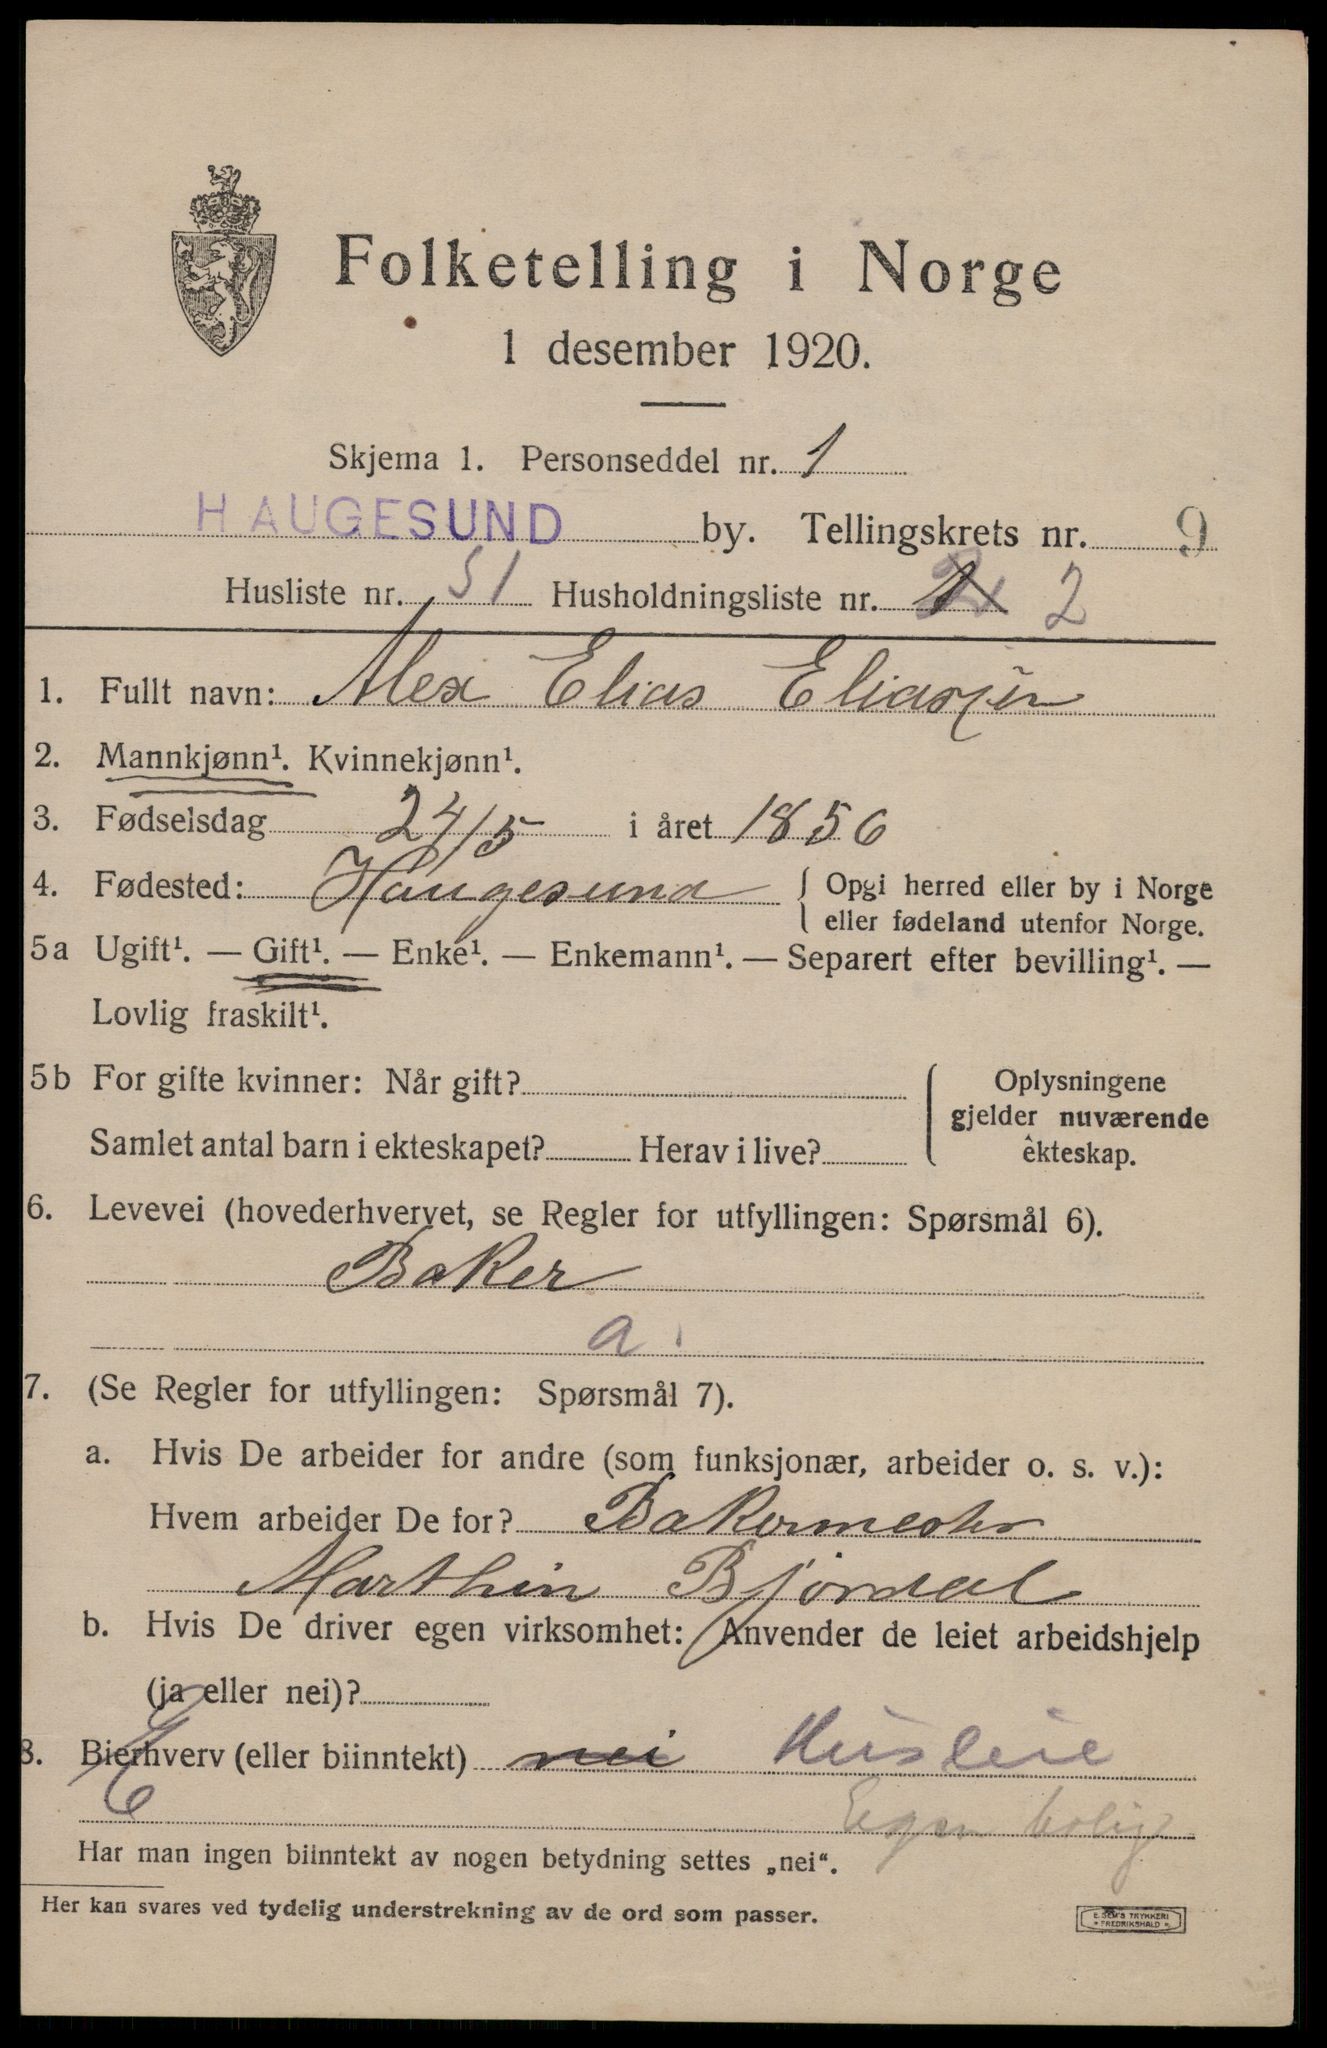 Folketelling i Norge
1 desember 1920.
Skjema 1. Personseddel nr. 1
HAUGESUND by. Tellingskrets nr. 9
Husliste nr. 51 Husholdningsliste nr. 2
1. Fullt navn: Alex Elias Eliassen
2. Mannkjønn¹. Kvinnekjønn¹.
3. Fødselsdag 24/5 i året 1856
4. Fødested: Haugesund { Opgi herred eller by i Norge
eller fødeland utenfor Norge.
5a Ugift¹. — Gift¹. — Enke¹. — Enkemann¹. — Separert efter bevilling¹. —
Lovlig fraskilt¹.
5b For gifte kvinner: Når gift?
Samlet antal barn i ekteskapet? Herav i live?
Oplysningene
gjelder nuværende
êkteskap.
6. Levevei (hovederhvervet, se Regler for utfyllingen: Spørsmål 6).
Baker
a.
7. (Se Regler for utfyllingen: Spørsmål 7).
a. Hvis De arbeider for andre (som funksjonær, arbeider o. s. v.):
Hvem arbeider De for? Bakermester
Marthin Bjørdal
b. Hvis De driver egen virksomhet: Anvender de leiet arbeidshjelp
(ja eller nei)?
8. Bierhverv (eller biinntekt) nei Husleie
Egen bolig
Har man ingen biinntekt av nogen betydning settes „nei".
Her kan svares ved tydelig understrekning av de ord som passer.
E. SEM'S TRYKKERI
FREDRIKSHALD